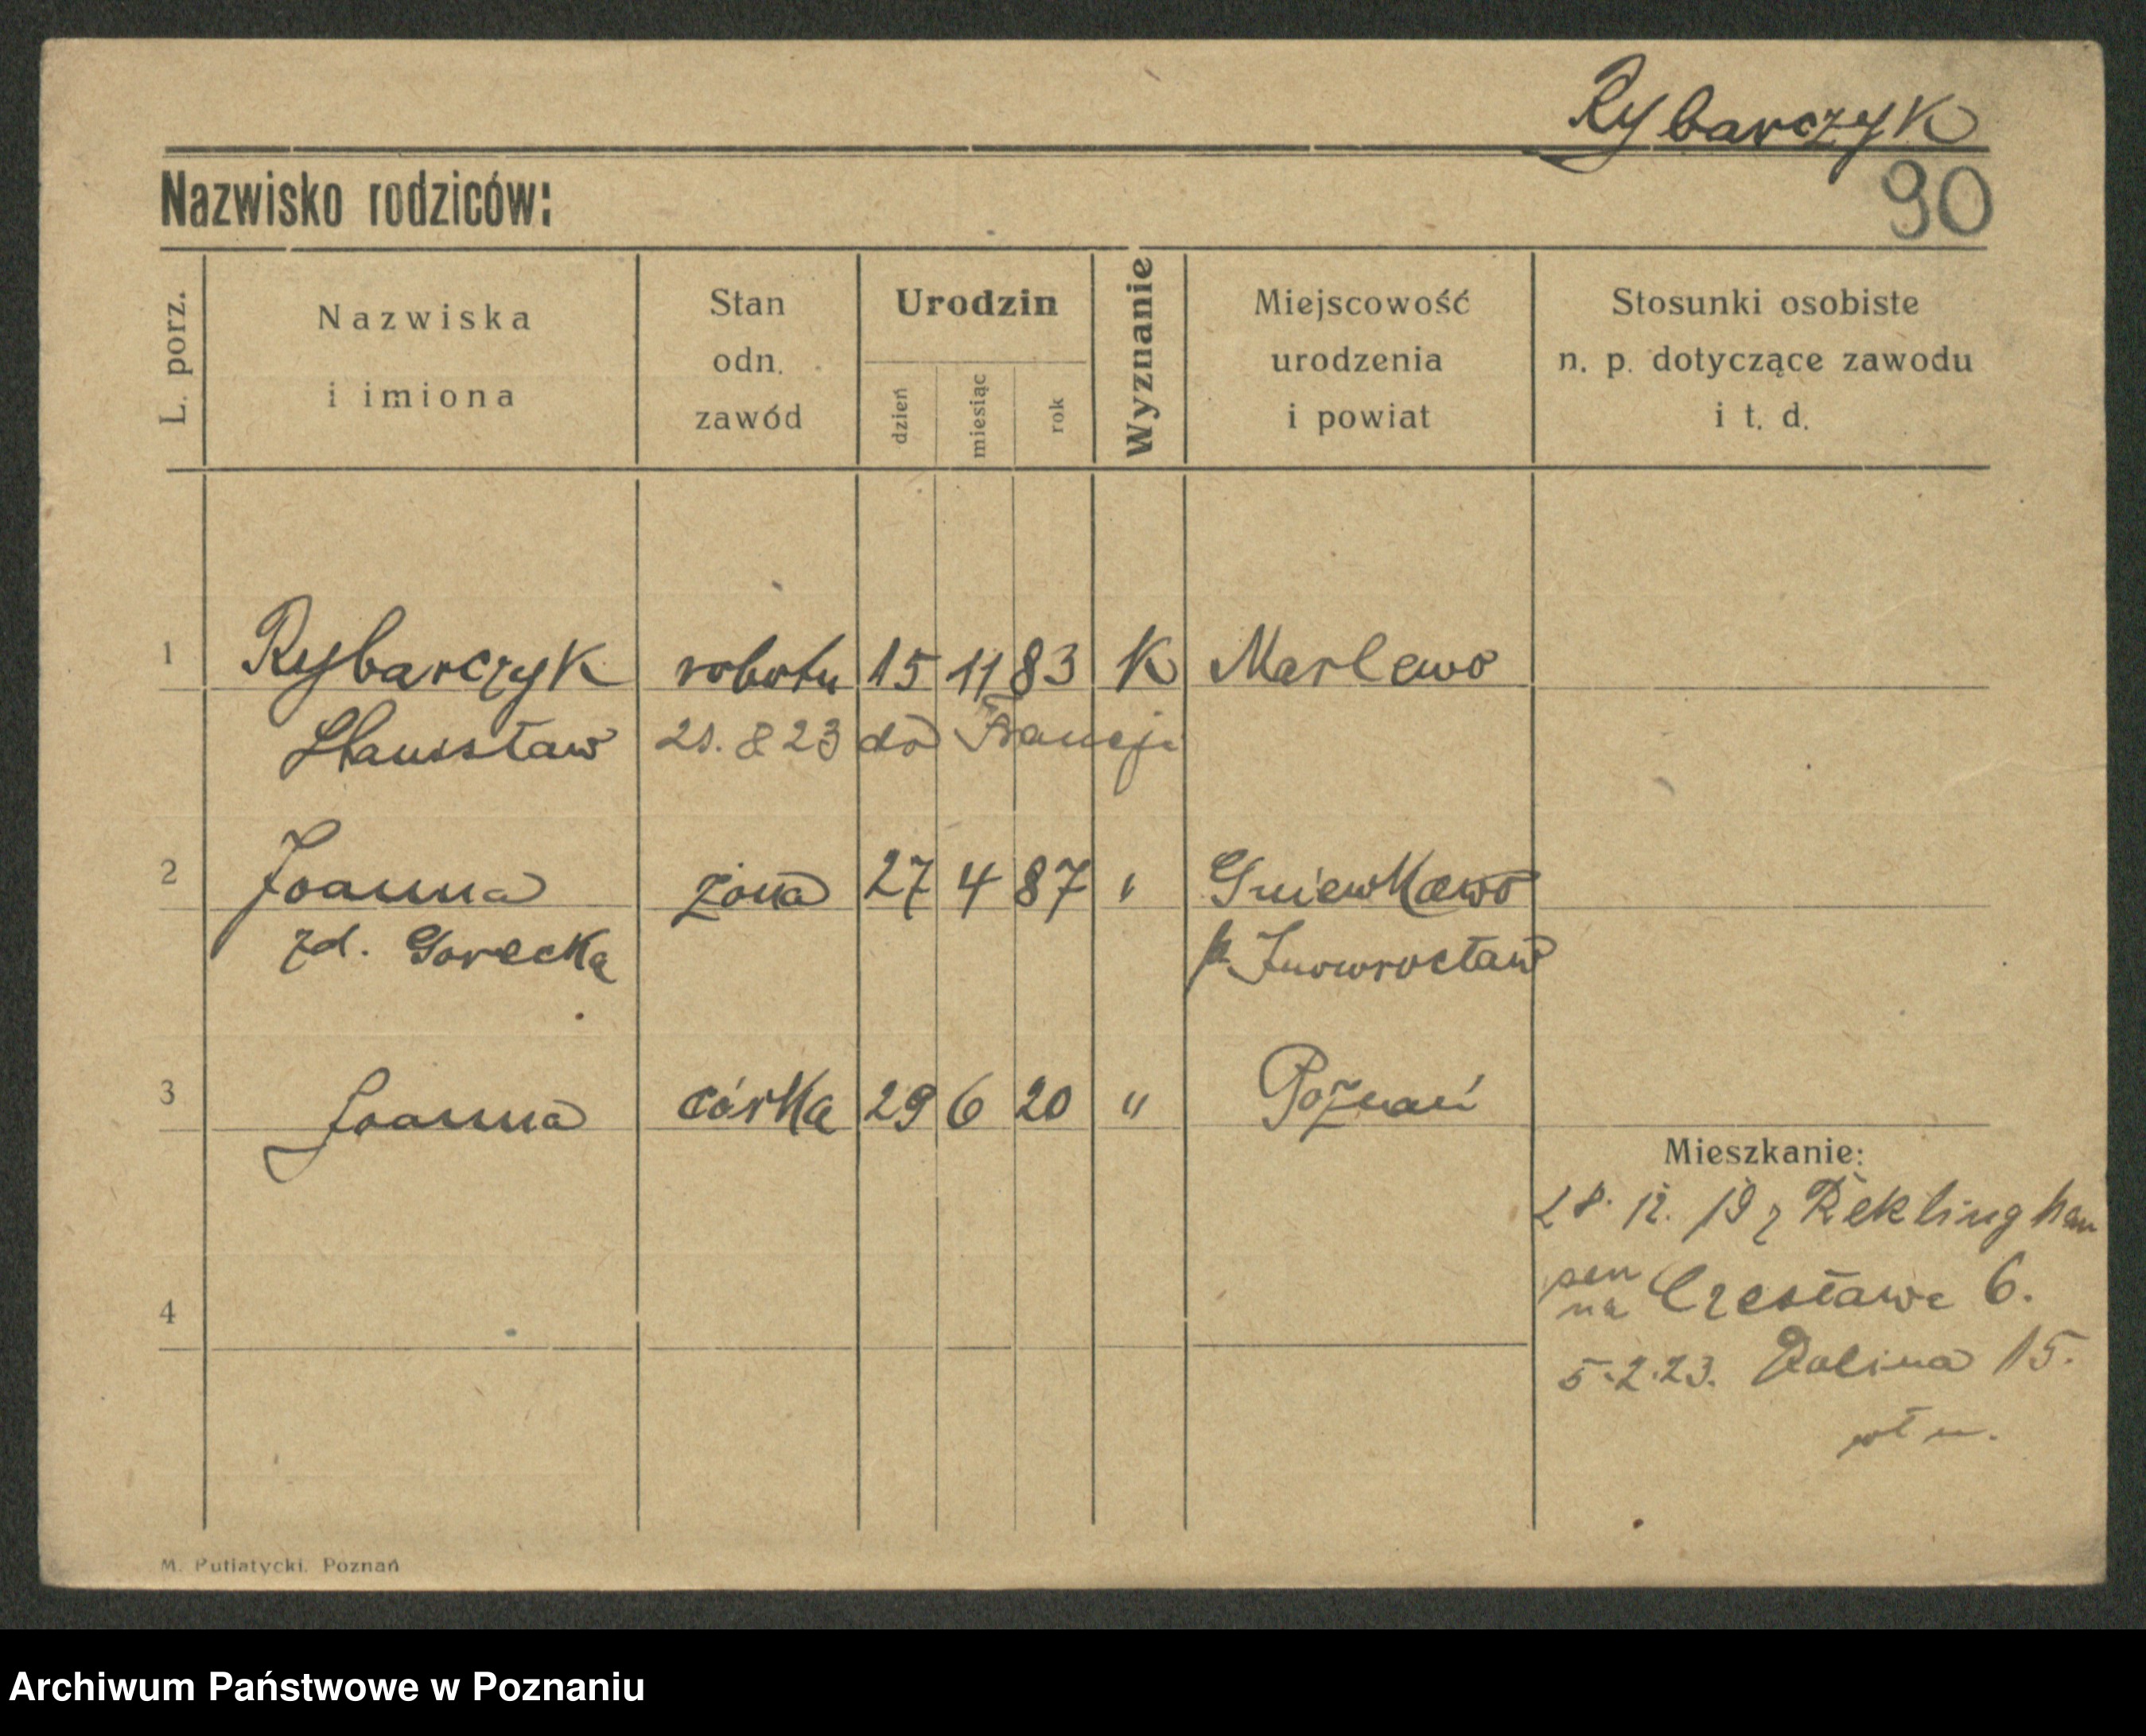 Rybarczyk
Nazwisko rodziców:
90
L. porz.
Nazwiska
i imiona
Stan
odn.
zawód
Urodzin
dzień
miesiąc
rok
Wyznanie
Miejscowość
urodzenia
i powiat
Stosunki osobiste
n. p. dotyczące zawodu
i t. d.
1 Rybarczyk robotn 15 11 83 K Marlewo
Stanisław 21. 8 23 do Francji
2 Joanna żona 27 4 87 " Gniewkowo
zd. Gorecka p. Inowrocław
3 Joanna córka 29 6 20 " Poznań
Mieszkanie:
28. 12. 19 z Reklinghau
sen
na Czesława 6.
4
5.2.23. Dolina 15.
M. Putiatycki. Poznań
Archiwum Państwowe w Poznaniu